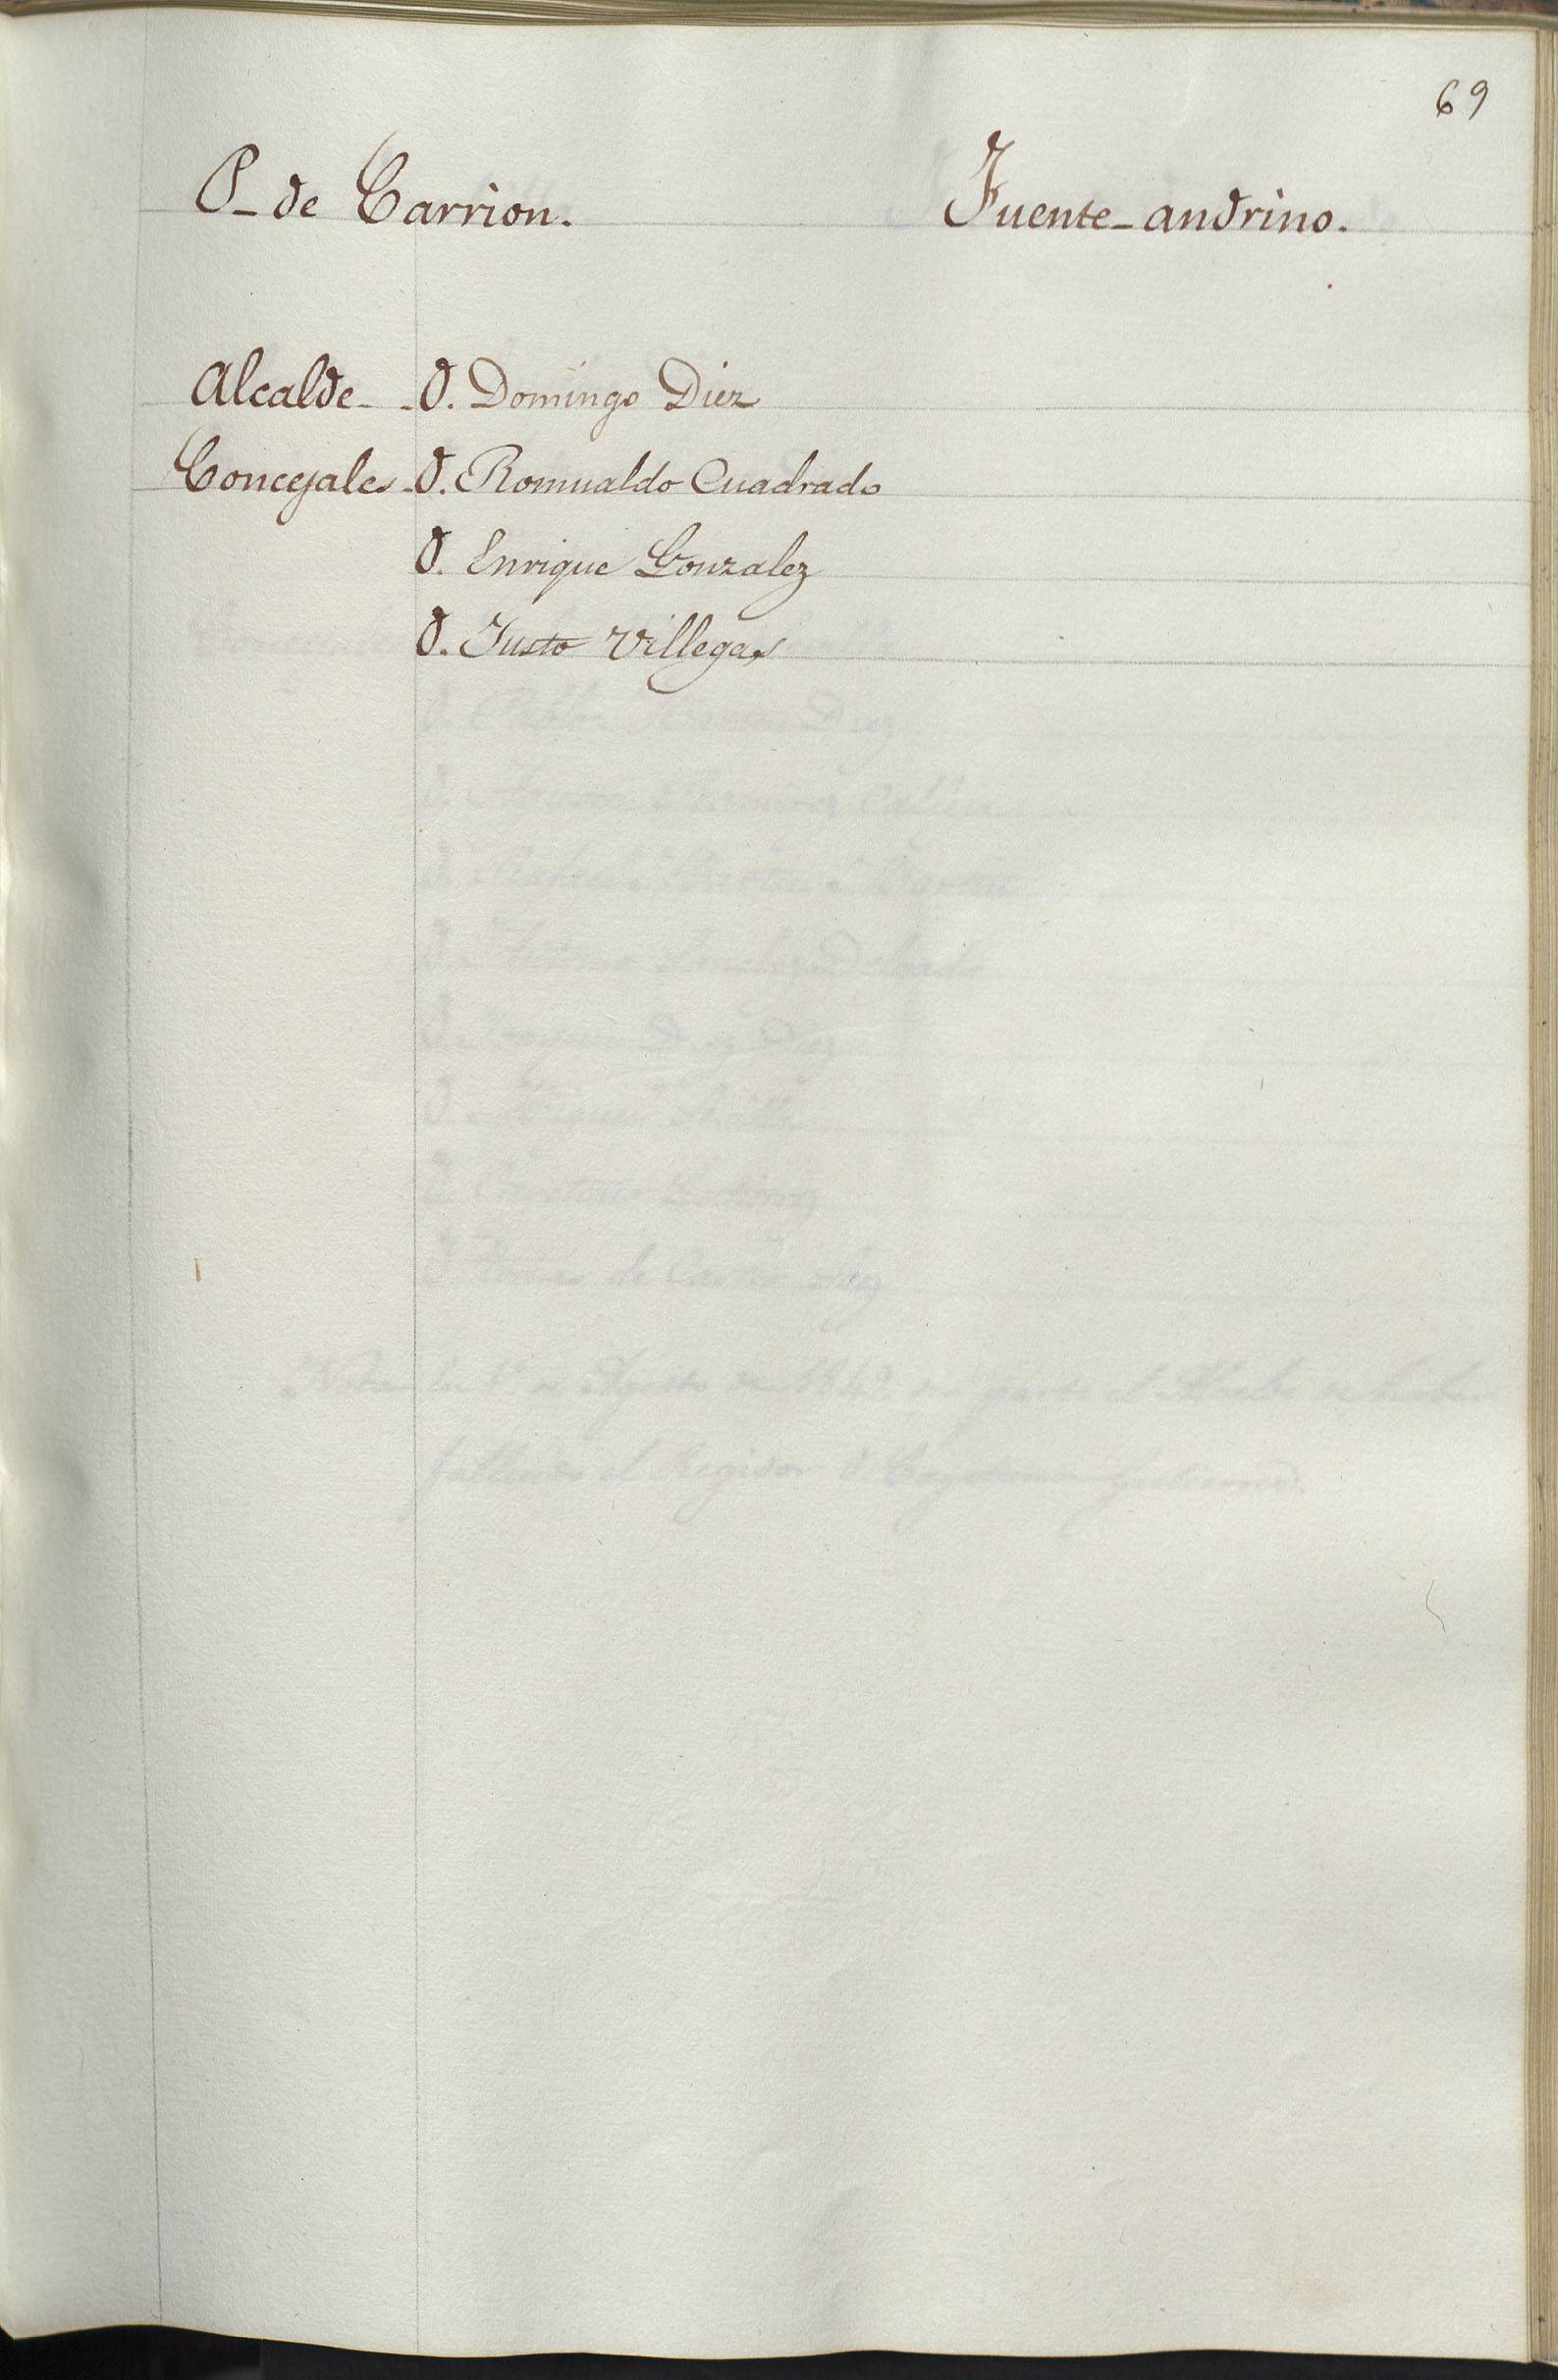 69
P_ de Carrion. Fuente_andrino.
Alcalde_ _D. Domingo Diez
Concejales_D. Romualdo Cuadrado
D. Enrique Gonzalez
D. Justo Villegas